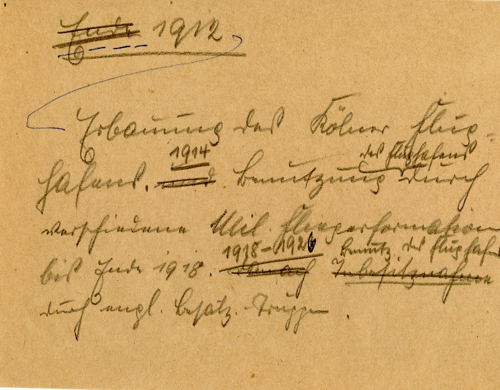 Ende 1912
Erbauung des Kölner Flug-
1914 des Flughafens
hafens. und Benutzung durch
verschiedene Mil. Fliegerformation
1918-1926 Benutz. des Flughafens
bis Ende 1918. Inbesitznahme
durch engl. Besatz. Truppen.